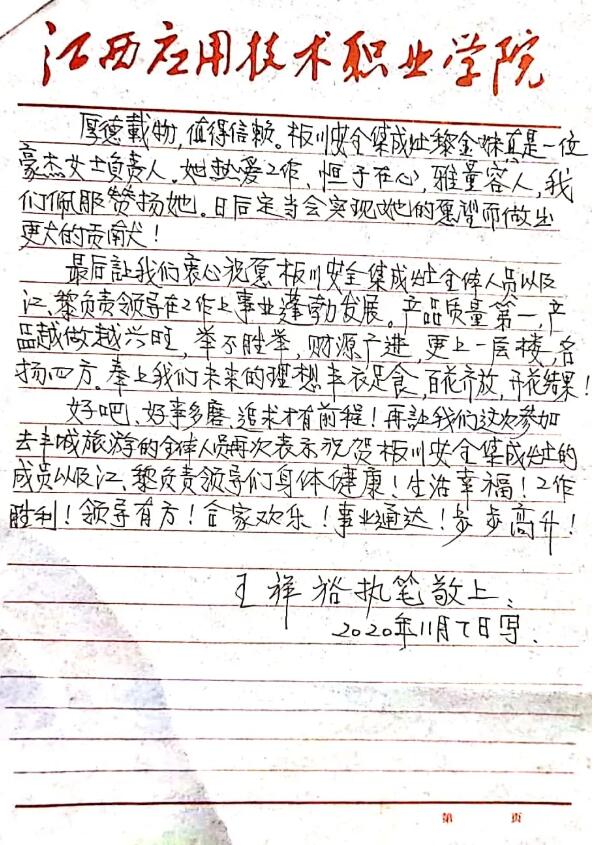 江西应用技术职业学院
厚德载物，值得信赖。板川安全集成灶黎金妹真是一位
豪杰女士负责人。她热爱工作、恒于在心，雅量容人，我
们佩服赞扬她。日后定当会实现她的愿望而做出
更大的贡献！
最后让我们衷心祝愿板川安全集成灶全体人员以及
江、黎负责领导在工作上事业蓬勃发展。产品质量第一，产
品越做越兴旺，举不胜举，财源广进，更上一层楼，名
扬四方。奉上我们未来的理想丰衣足食，百花齐放，开花结果！
好吧、好事多磨、追求才有前程！再让我们这次参加
去丰城旅游的全体人员再次表示祝贺板川安全集成灶的
成员以及江、黎负责领导们身体健康！生活幸福！工作
胜利！领导有方！合家欢乐！事业通达！步步高升！
王祥裕执笔敬上：
2020年11月7日写.
第 页